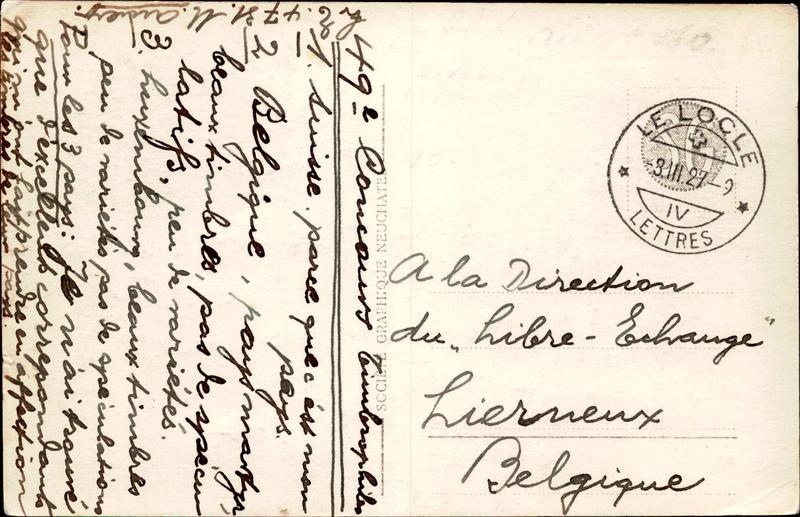 49e Concours timbrophiles
1. Suisse, parce que c'est mon
pays.
2 Belgique, pays martyr
beaux timbres, pas de spécu
latifs, peu de variétés.
3. Luxembourg, beaux timbres
peu de variétés pas de speculations
Pour les 3 pays: Je n'ai trouvé
que d'excellents correspondants
qui m'ont fait prendre en affection
les timbres de leur pays.
SOCIÉTÉ GRAPHIQUE NEUCHATEL
LE LOCLE
-8.III.27
IV
LETTRES
A la Direction
du "Libre-Echange"
Lierneux
Belgique